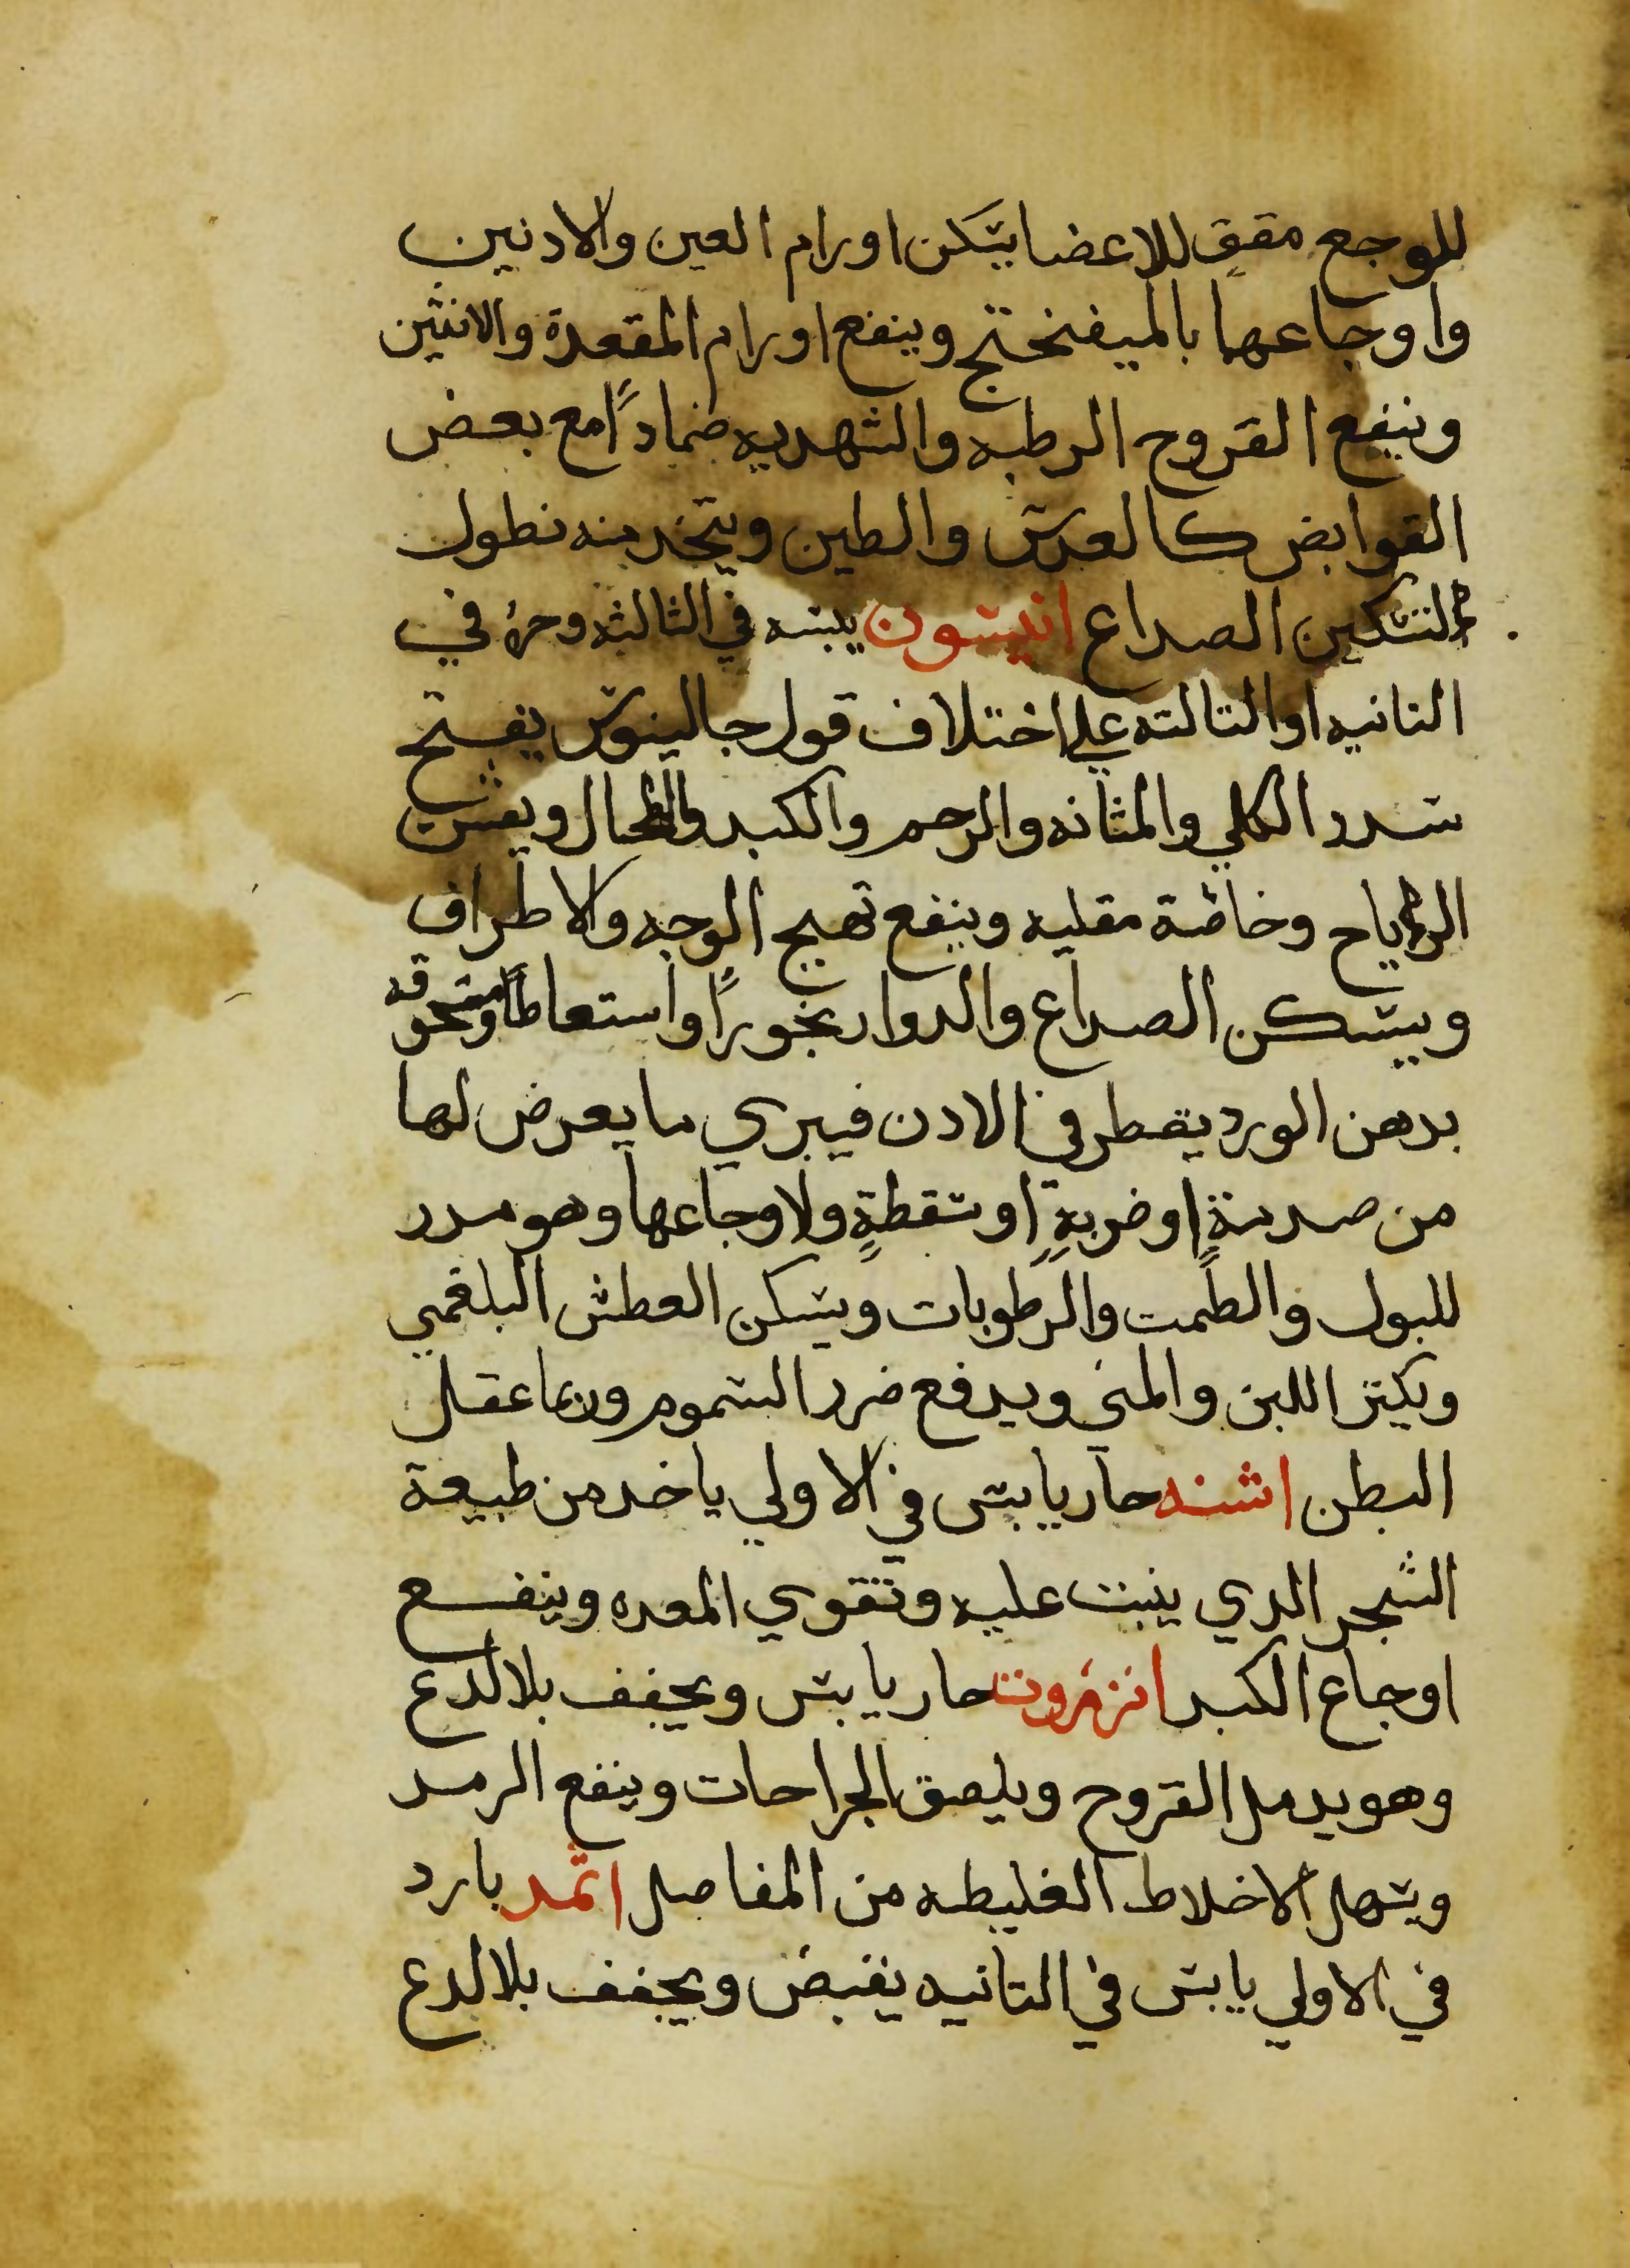 للوجع مقوٍ للاعضا يسكن اورام العين والادنين
واوجاعهما بالميفختج وينفع اورام المقعدة والانثيين
وينفع القروح الرطبه والشهديه ضماداً مع بعض
القوابض كالعدس والطين ويتخد منه نطول
لتسكين الصداع انيسون يبسه في الثالثه وحره في
التانيه او التالته علي اختلاف قول جالينوس يفتح
سدد الكلي والمثانه والرحم والكبد والطحال ويفش
الرياح وخاصة مقليه وينفع تهيج الوجه والاطراف
ويسكن الصداع والدوار بخوراً واستعاطاً ومسحوقه
بدهن الورد يقطر في الادن فيبري ما يعرض لها
من صدمةٍ او ضربةٍ او سقطةٍ ولاوجاعها وهو مدر
للبول والطمت والرطوبات ويسكن العطش البلغمي
ويكتر اللبن والمني ويدفع ضرر السموم وربما عقل
البطن اشنه حار يابس في الاولي ياخد من طبيعة
الشجر الدي ينبت عليه وتقوي المعده وينفع
اوجاع الكبد انزروت حار يابس ويجفف بلا لدع
وهو يدمل القروح ويلصق الجراحات وينفع الرمد
ويسهل الاخلاط الغليطه من المفاصل اتمد بارد
في الاولي يابس في التانيه يقبض ويجفف بلا لدع